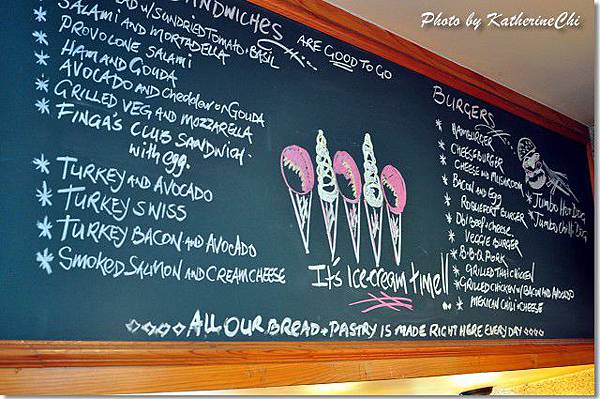 Photo by KatherineChi
SANDWICHES
ARE GOOD TO GO
BREAD W/ SUNDRIED TOMATO + BASIL
SALAMI AND MORTADELLA
PROVOLONE SALAMI
HAM AND GOUDA
AVOCADO AND CHEDDAR OR GOUDA
GRILLED VEG AND MOZZARELLA
FINGA'S CLUB SANDWICH
with egg.
TURKEY AND AVOCADO
TURKEY SWISS
TURKEY BACON AND AVOCADO
SMOKED SALMON AND CREAM CHEESE
It's ICE-CREAM TIME!!
BURGERS
HAMBURGER
CHEESEBURGER
CHEESE AND MUSHROOM
BACON AND EGG
ROQUEFORT BURGER
Dbl BEEF + CHEESE
VEGGIE BURGER
B-B-Q PORK
GRILLED THAI CHICKEN
GRILLED CHICKEN W/ BACON AND AVOCADO
MEXICAN CHILI + CHEESE
JUMBO HOT DOG
JUMBO CHILI DOG
ALL OUR BREAD + PASTRY IS MADE RIGHT HERE EVERY DAY